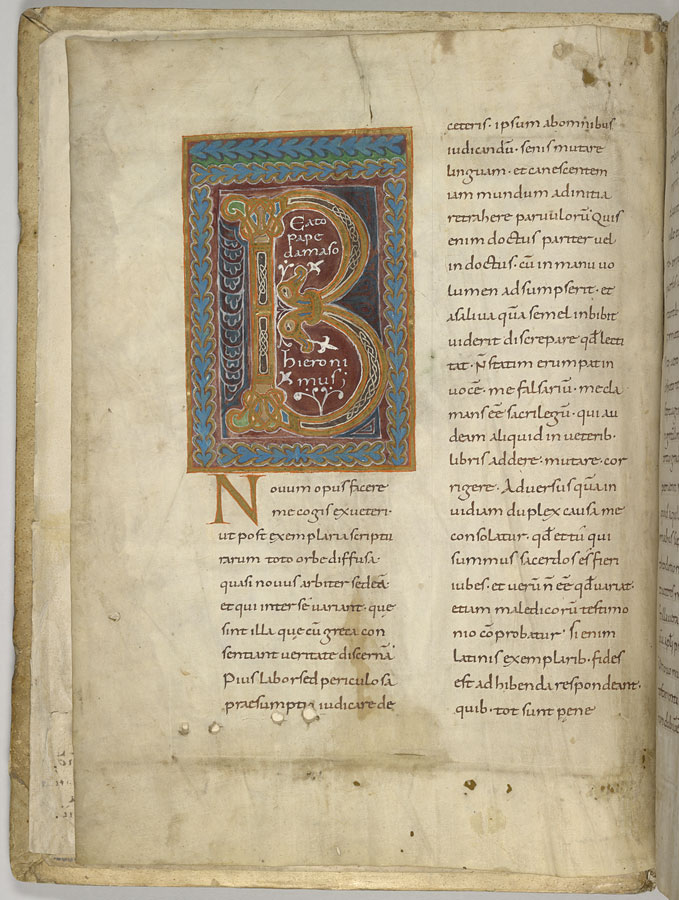 B
eato
pape
damaso
hieroni
mus;
Novum opus facere
me cogis exueteri·
ut post exemplaria scriptu
rarum toto orbe diffusa·
quasi novus arbiter sedeā·
et qui inter se uariant· que
sint illa que cū greca con
sentiant ueritate discernā·
Pius labor sed periculosa
praesumptio iudicare de
ceteris· ipsum abomnibus
iudicandū· senis mutare
linguam· et canescentem
iam mundum adinitia
retrahere paruulorū Quis
enim doctus pariter uel
in doctus· cū in manu uo
lumen adsumpserit· et
asaliua quā semel inbibit
uiderit discrepare qđ lecti
tat· n̄ statim erumpat in
uocē· me falsariū· me cla
mans eē sacrilegū· qui au
deam aliquid in ueterib·
libris addere· mutare· cor
rigere· Aduersus quā in
uidiam duplex causa me
consolatur· qđ et tū qui
summus sacerdos es fieri
iubes· et uerū n̄ eē qđ uariat·
etiam maledicorū testimo
nio cōprobatur· si enim
latinis exemplarib· fides
est ad hibenda respondeant·
quib· tot sunt pene